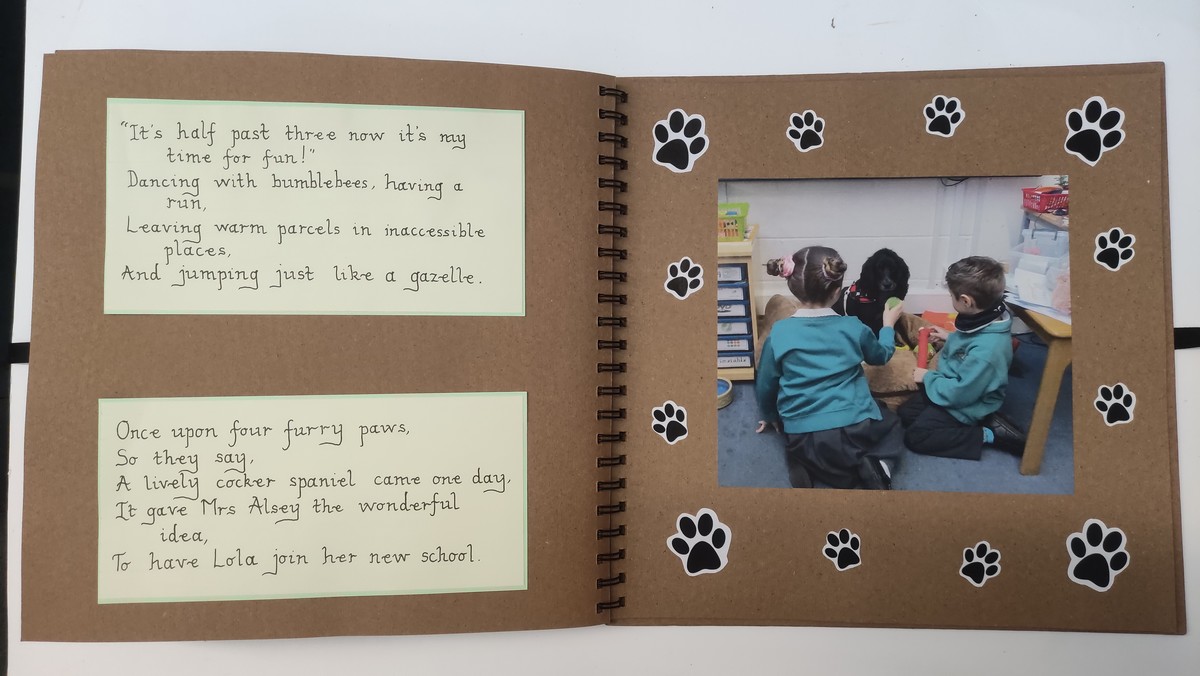 "It's half past three now it's my
time for fun!"
Dancing with bumblebees, having a
run,
Leaving warm parcels in inaccessible
places,
And jumping just like a gazelle.
Once upon four furry paws,
So they say,
A lively cocker spaniel came one day,
It gave Mrs Alsey the wonderful
idea,
To have Lola join her new school.